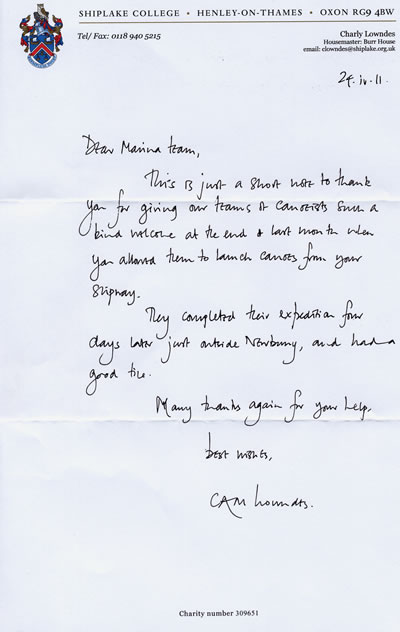 SHIPLAKE COLLEGE • HENLEY-ON-THAMES • OXON RG9 4BW
Tel/ Fax: 0118 940 5215
Charly Lowndes
Housemaster: Burr House
email: clowndes@shiplake.org.uk
24.iv.11.
Dear Marina team,
This is just a short note to thank
you for giving our teams of canoeists such a
kind welcome at the end of last month when
you allowed them to launch canoes from your
slipway.
They completed their expedition four
days later just outside Newbury, and had a
good time.
Many thanks again for your help.
best wishes,
CAM Lowndes.
Charity number 309651